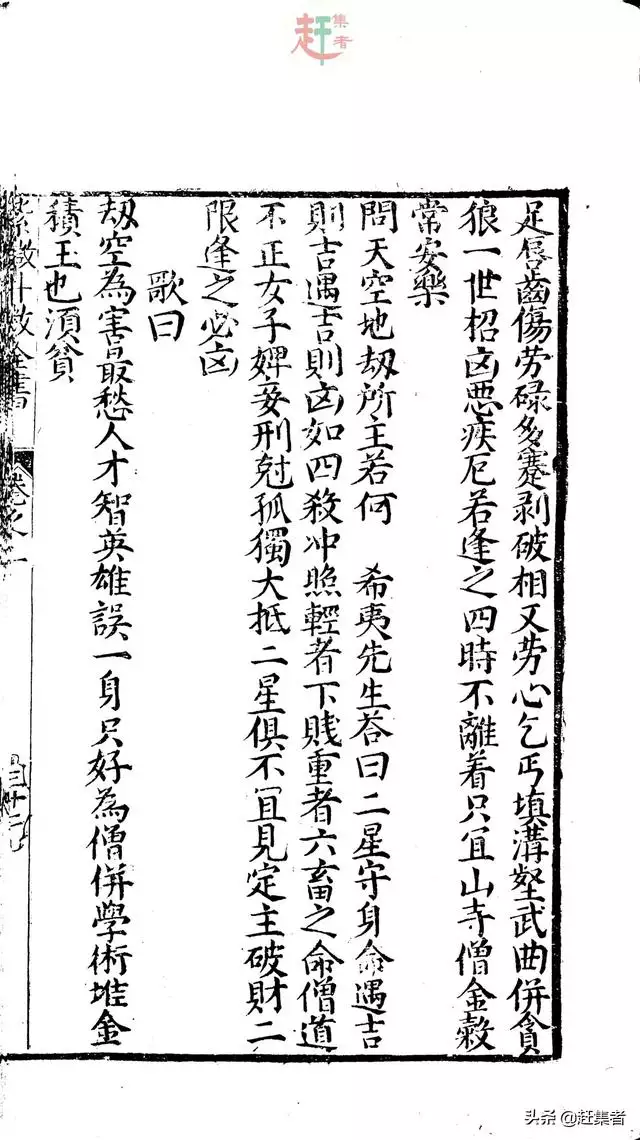 赶集者
足唇齒傷劳碌多蹇剥破相又劳心乞丐填溝壑武曲併貪
狼一世招凶悪疾厄若逢之四時不離着只宜山寺僧金穀
常安樂
問天空地刼所主若何 希夷先生答曰二星守身命遇吉
則吉遇吉則凶如四殺冲照輕者下賤重者六畜之命僧道
不正女子婢妾刑尅孤獨大抵二星俱不宜見定主破財二
限逢之必凶
歌曰
刼空為害最愁人才智英雄誤一身只好為僧併學術堆金
積玉也須貧
紫微斗数全書 卷之一
三十二
头条 @赶集者